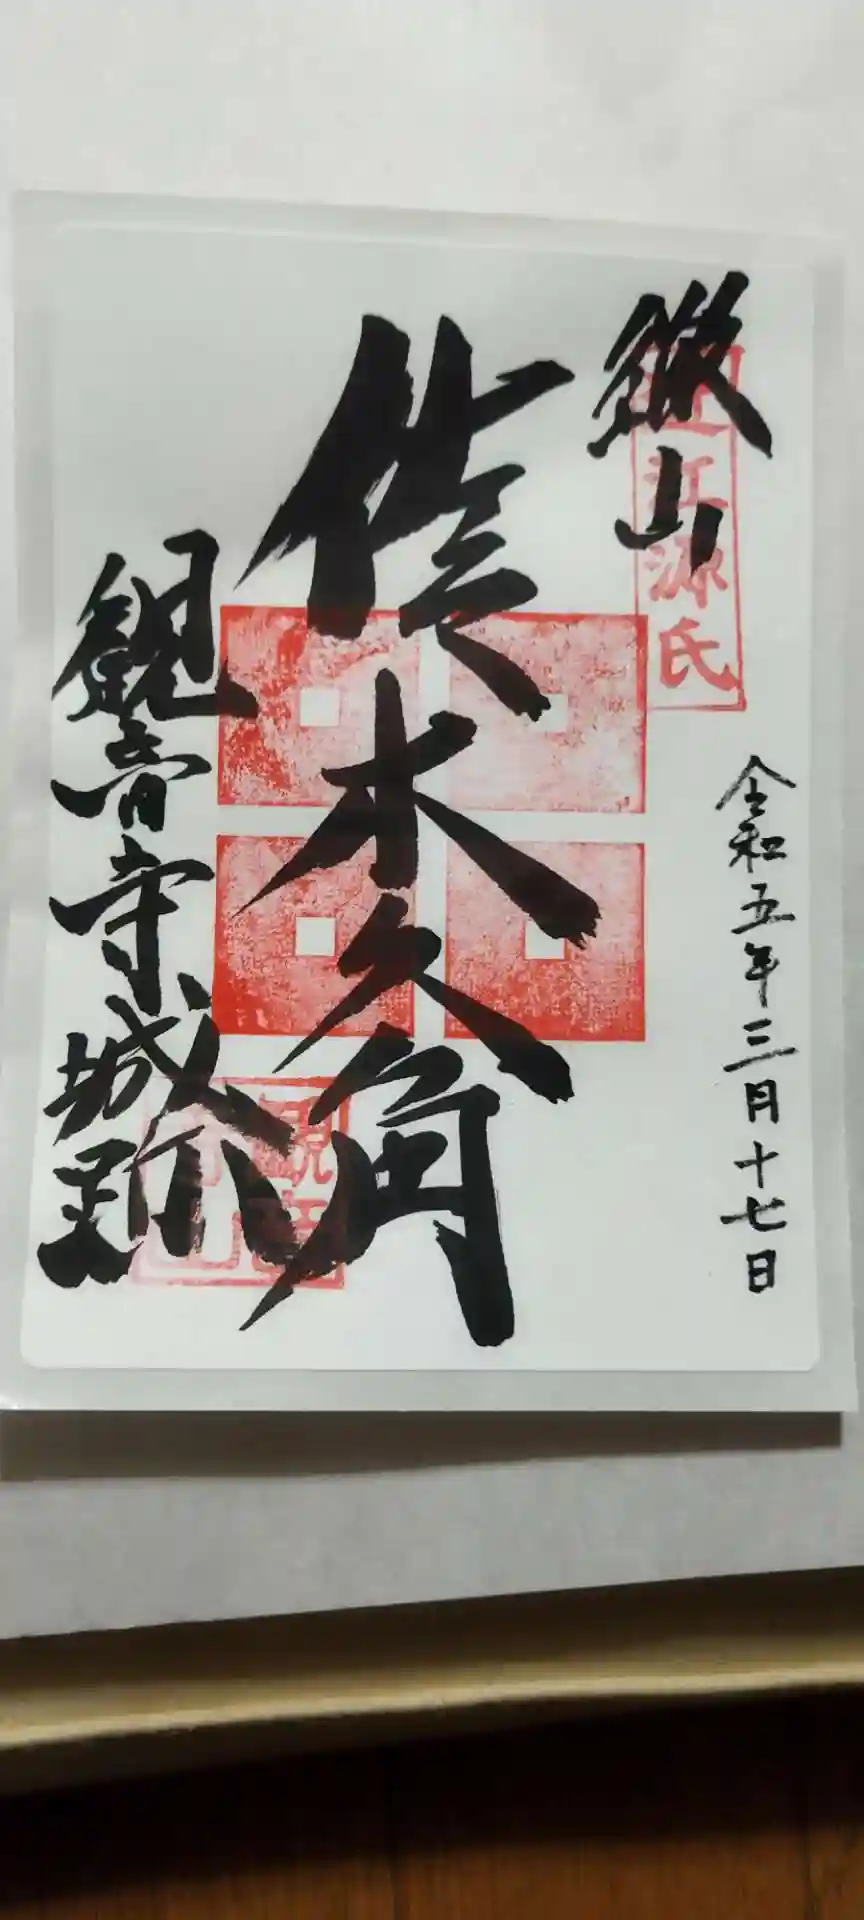 繖山
近江源氏
令和五年三月十七日
佐々木六角
観音寺城跡
観音